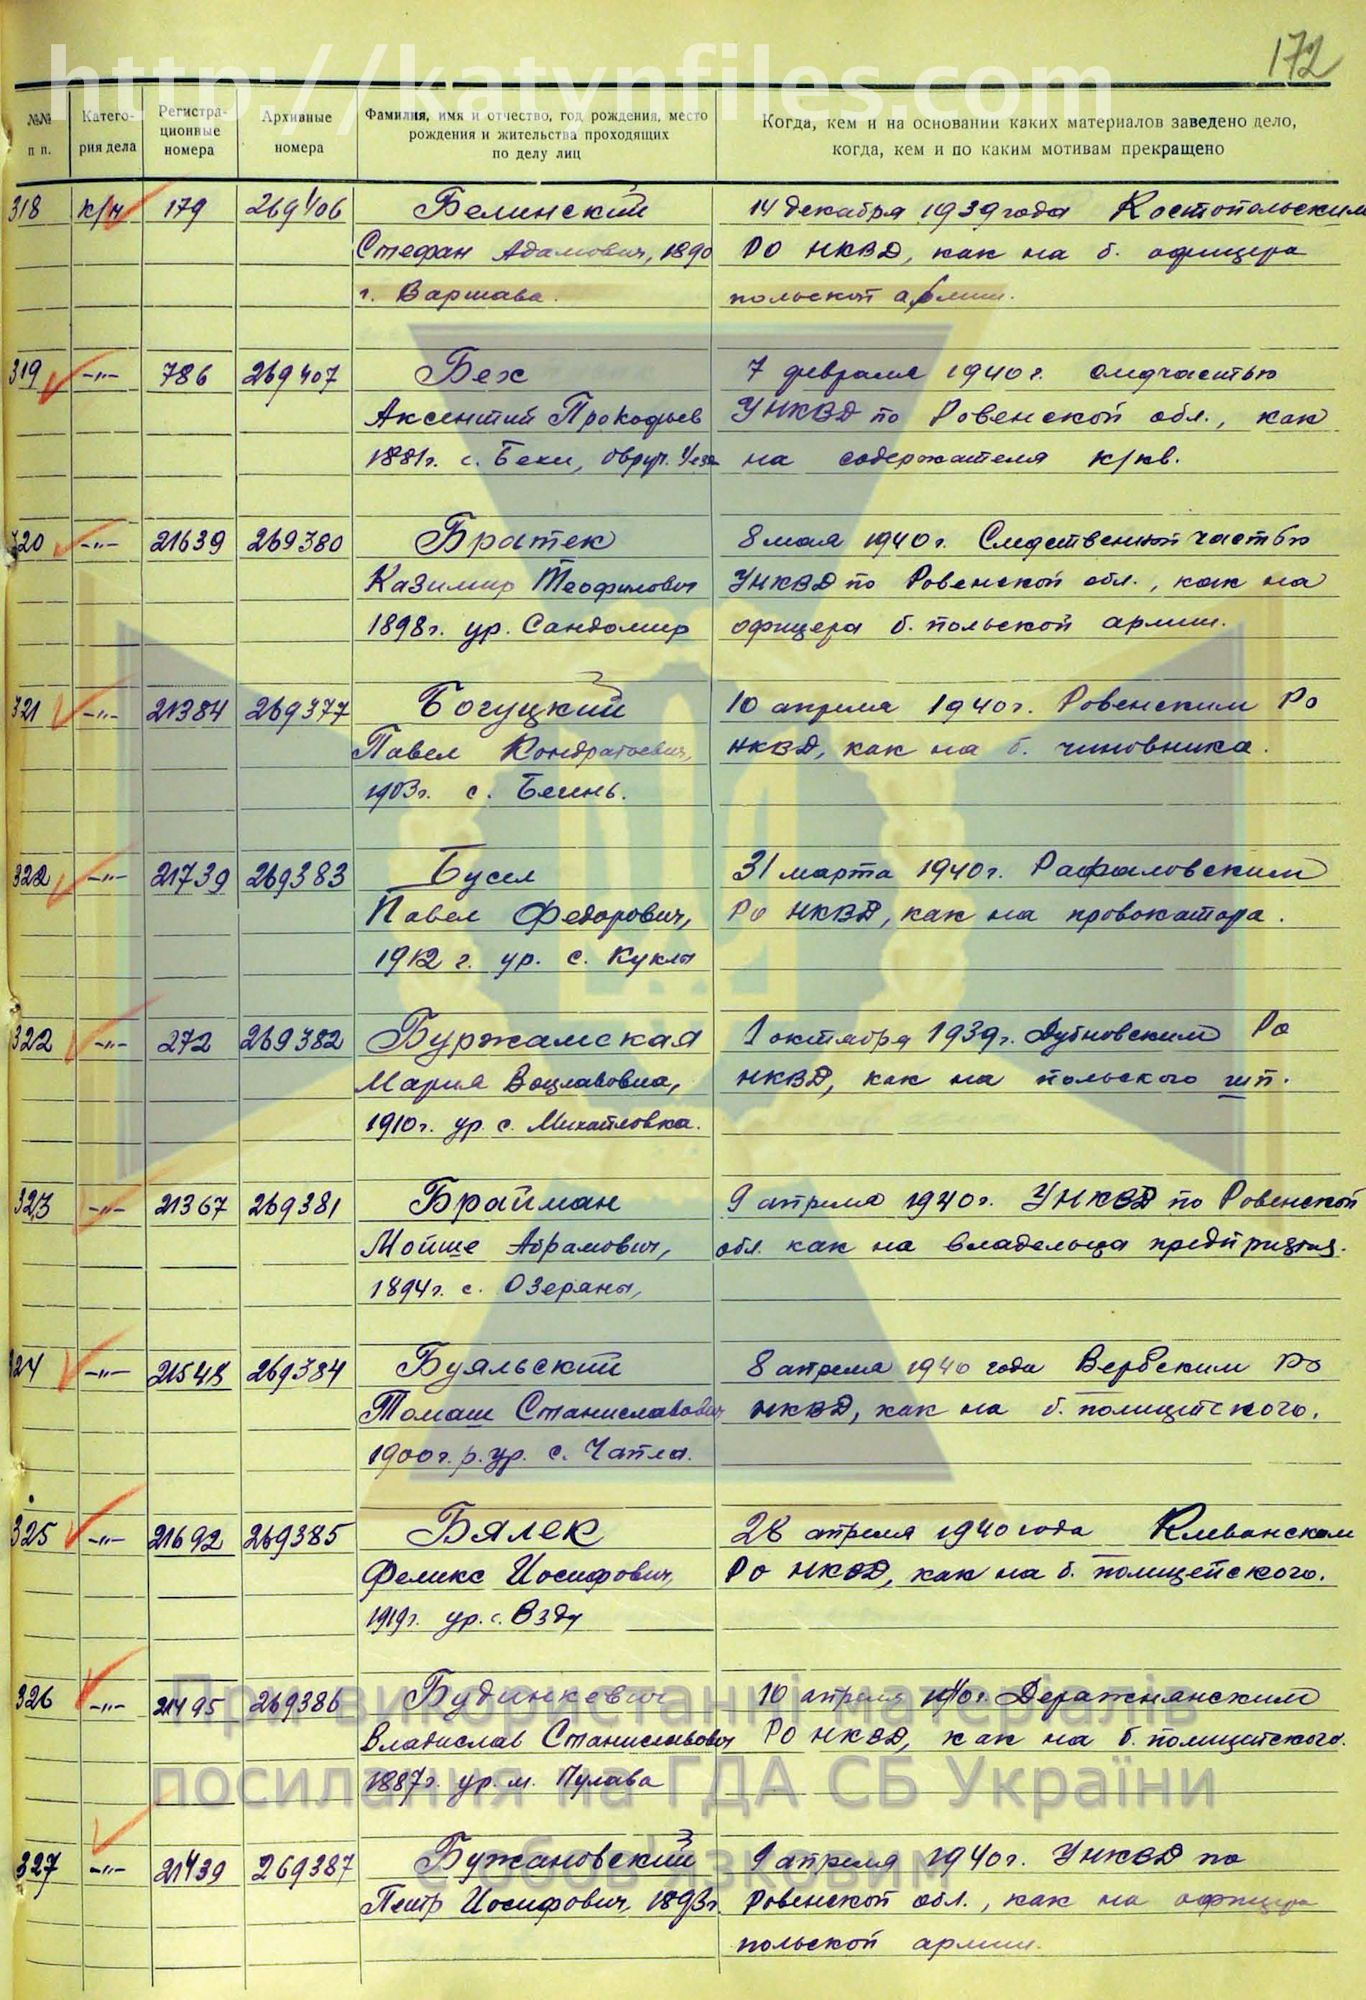 http://katynfiles.com
172
№№ п п.
Катего-
рия дела
Регистра-
ционные
номера
Архивные
номера
Фамилия, имя и отчество, год рождения, место
рождения и жительства проходящих
по делу лиц
Когда, кем и на основании каких материалов заведено дело,
когда, кем и по каким мотивам прекращено
318 к/р 179 269406 Белинский 14 декабря 1939 года Костопольским
Стефан Адамович, 1890 РО НКВД, как на б. офицера
г. Варшава. польской армии.
319 -"- 786 269407 Бех 7 февраля 1940 г. следчастью
Аксентий Прокофьев УНКВД по Ровенской обл., как
1881 г. с. Бехи, Овруч. уезд на содержателя к/кв.
320 -"- 21639 269380 Братек 8 мая 1940 г. Следственной частью
Казимир Теофилович УНКВД по Ровенской обл., как на
1898 г. ур. Сандомир офицера б. польской армии.
321 -"- 21384 269377 Богуцкий 10 апреля 1940 г. Ровенским РО
Павел Кондратьевич, НКВД, как на б. чиновника.
1903 г. с.
322 -"- 21739 269383 Бусел 31 марта 1940 г. Рафаловским
Павел Федорович, РО НКВД, как на провокатора.
1912 г. ур. с. Куклы
322 -"- 272 269382 Буржамская 1 октября 1939 г. Дубновским РО
Мария Вацлавовна, НКВД, как на польского шп.
1910 г. ур. с. Михайловка.
323 -"- 21367 269381 Брайман 9 апреля 1940 г. УНКВД по Ровенской
Мойше Абрамович, обл. как на владельца предприятия.
1894 г. с. Озераны,
324 -"- 21548 269384 Буяльский 8 апреля 1940 года Вербским РО
Томаш Станиславович НКВД, как на б. полицейского.
1900 г. р. ур. с. Чапла.
325 -"- 21692 269385 Бялек 28 апреля 1940 года Клеванским
Феликс Иосифович, РО НКВД, как на б. полицейского.
1919 г. ур. с. Взду
326 -"- 21495 269386 Будинкевич 10 апреля 1940 г. Деражнянским
Владислав Станиславович РО НКВД, как на б. полицейского.
1887 г. ур. м. Пулава
327 -"- 21439 269387 Бужановский 9 апреля 1940 г. УНКВД по
Петр Иосифович, 1893 г. Ровенской обл., как на офицера
польской армии.
При використанні матеріалів
посилання на ГДА СБ України
є обов'язковим